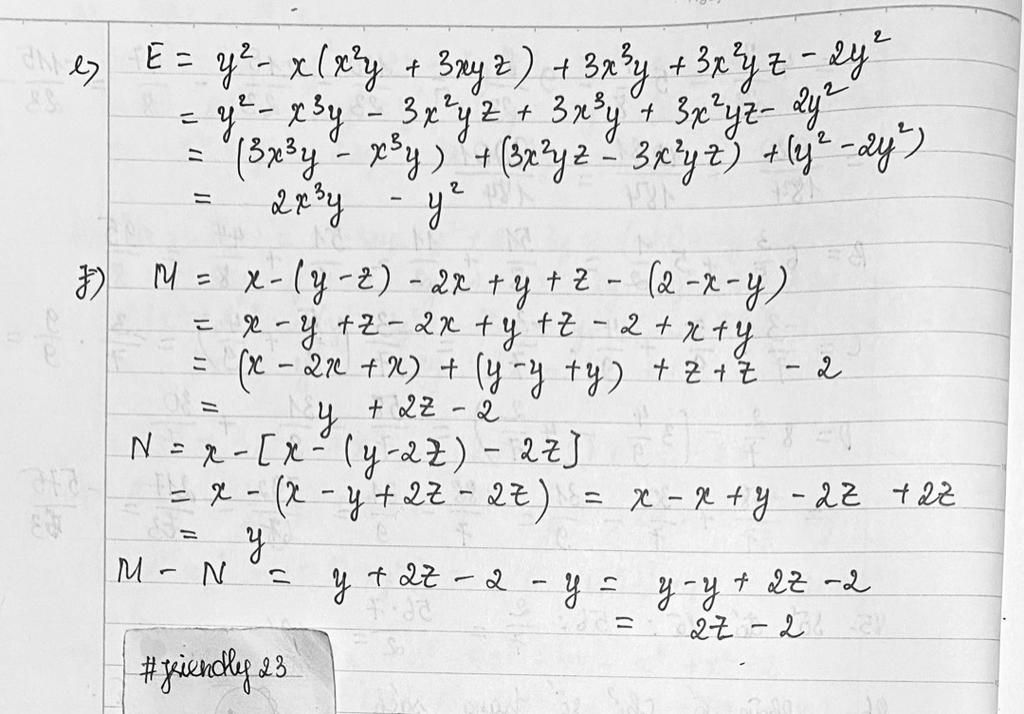 e) E = y² - x(x²y + 3xyz) + 3x³y + 3x²yz - 2y²
= y² - x³y - 3x²yz + 3x³y + 3x²yz - 2y²
= (3x³y - x³y) + (3x²yz - 3x²yz) + (y² - 2y²)
= 2x³y - y²
f) M = x - (y - z) - 2x + y + z - (2 - x - y)
= x - y + z - 2x + y + z - 2 + x + y
= (x - 2x + x) + (y - y + y) + z + z - 2
= y + 2z - 2
N = x - [x - (y - 2z) - 2z]
= x - (x - y + 2z - 2z) = x - x + y - 2z + 2z
= y
M - N = y + 2z - 2 - y = y - y + 2z - 2
= 2z - 2
#friendly23